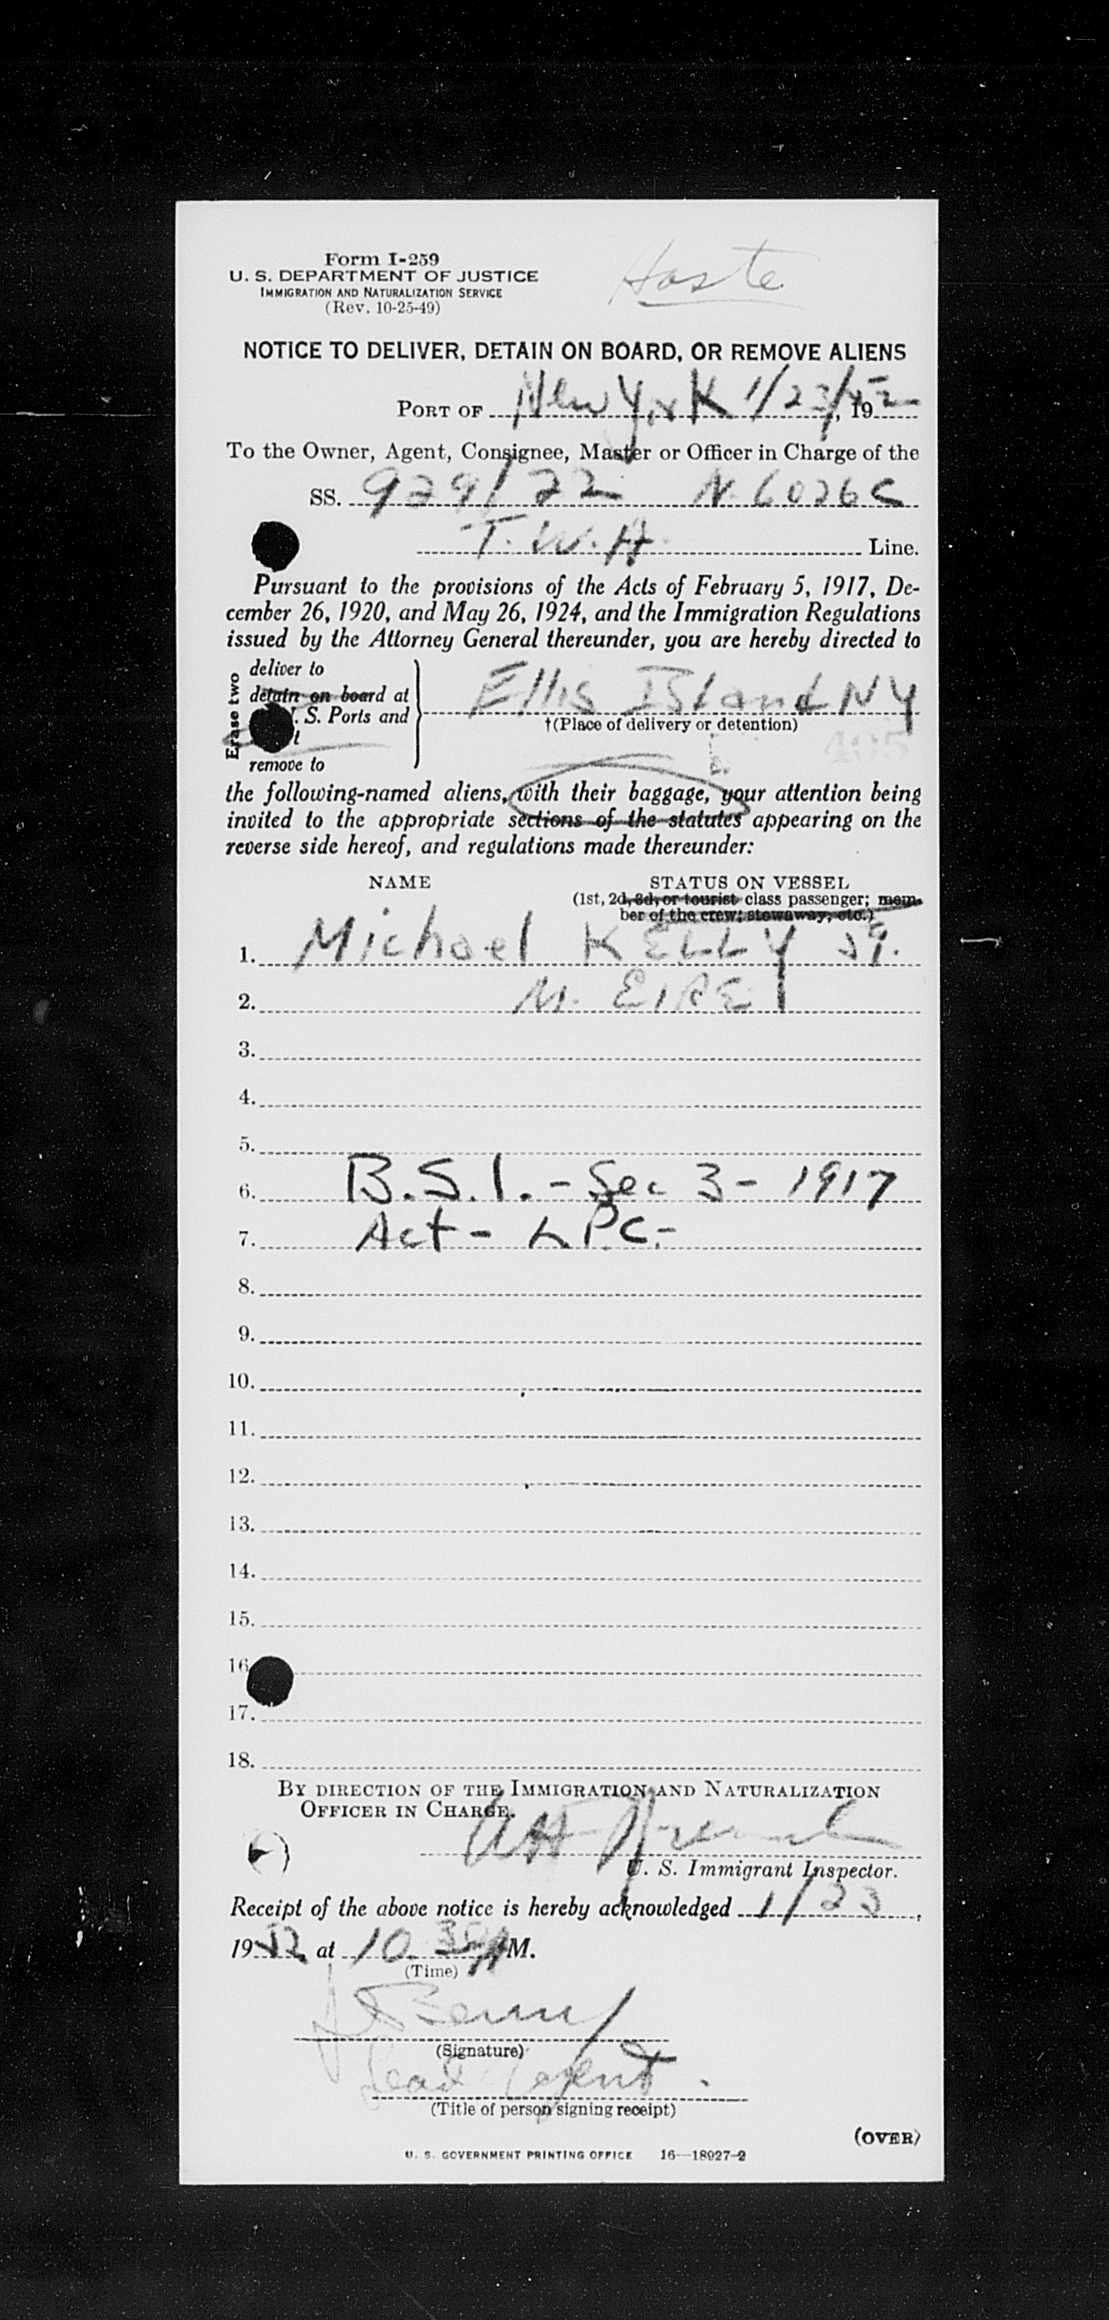 Form I-259
U. S. DEPARTMENT OF JUSTICE
IMMIGRATION AND NATURALIZATION SERVICE
(Rev. 10-25-49)
Hoste
NOTICE TO DELIVER, DETAIN ON BOARD, OR REMOVE ALIENS
PORT OF New York 1/23/52, 1952
To the Owner, Agent, Consignee, Master or Officer in Charge of the
SS. 929/22 N. 6026C
T.W.A. Line.
Pursuant to the provisions of the Acts of February 5, 1917, De-
cember 26, 1920, and May 26, 1924, and the Immigration Regulations
issued by the Attorney General thereunder, you are hereby directed to
Erase two
deliver to
detain on board at
S. Ports and
remove to
Ellis Island NY
†(Place of delivery or detention)
the following-named aliens, with their baggage, your attention being
invited to the appropriate sections of the statutes appearing on the
reverse side hereof, and regulations made thereunder:
NAME STATUS ON VESSEL
(1st, 2d, 3d, or tourist class passenger; mem-
ber of the crew; stowaway, etc.)
1. Michael KELLY
2. M. EIRE
3.
4.
5.
6. B.S.I. - Sec 3 - 1917
7. Act - L.P.C. -
8.
9.
10.
11.
12.
13.
14.
15.
16
17.
18.
BY DIRECTION OF THE IMMIGRATION AND NATURALIZATION
OFFICER IN CHARGE.
U. S. Immigrant Inspector.
Receipt of the above notice is hereby acknowledged 1/23,
1952 at 10 35 A M.
(Time)
(Signature)
Lead Agent.
(Title of person signing receipt)
(OVER)
U. S. GOVERNMENT PRINTING OFFICE 16—18927-2